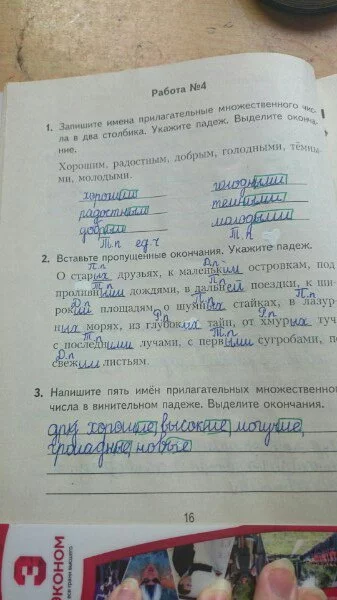 Работа №4
1. Запишите имена прилагательные множественного чис-
ла в два столбика. Укажите падеж. Выделите оконча-
ние.
Хорошим, радостным, добрым, голодными, тёмны-
ми, молодыми.
хорошим голодными
радостным темными
добрым молодыми
Т.п ед.ч Т.п
2. Вставьте пропущенные окончания. Укажите падеж.
П.п Д.п
О старых друзьях, к маленьким островкам, под
Т.п П.п
проливными дождями, в дальней поездки, к ши-
роким площадям, о шумных стайках, в лазур-
П.п Р.п Р.п
ных морях, из глубоких тайн, от хмурых туч
Т.п Т.п
с последними лучами, с первыми сугробами, по
Д.п
свежим листьям.
3. Напишите пять имён прилагательных множественног
числа в винительном падеже. Выделите окончания.
хорошие высокие могучие
громадные новые
16
З
ЭКОНОМ